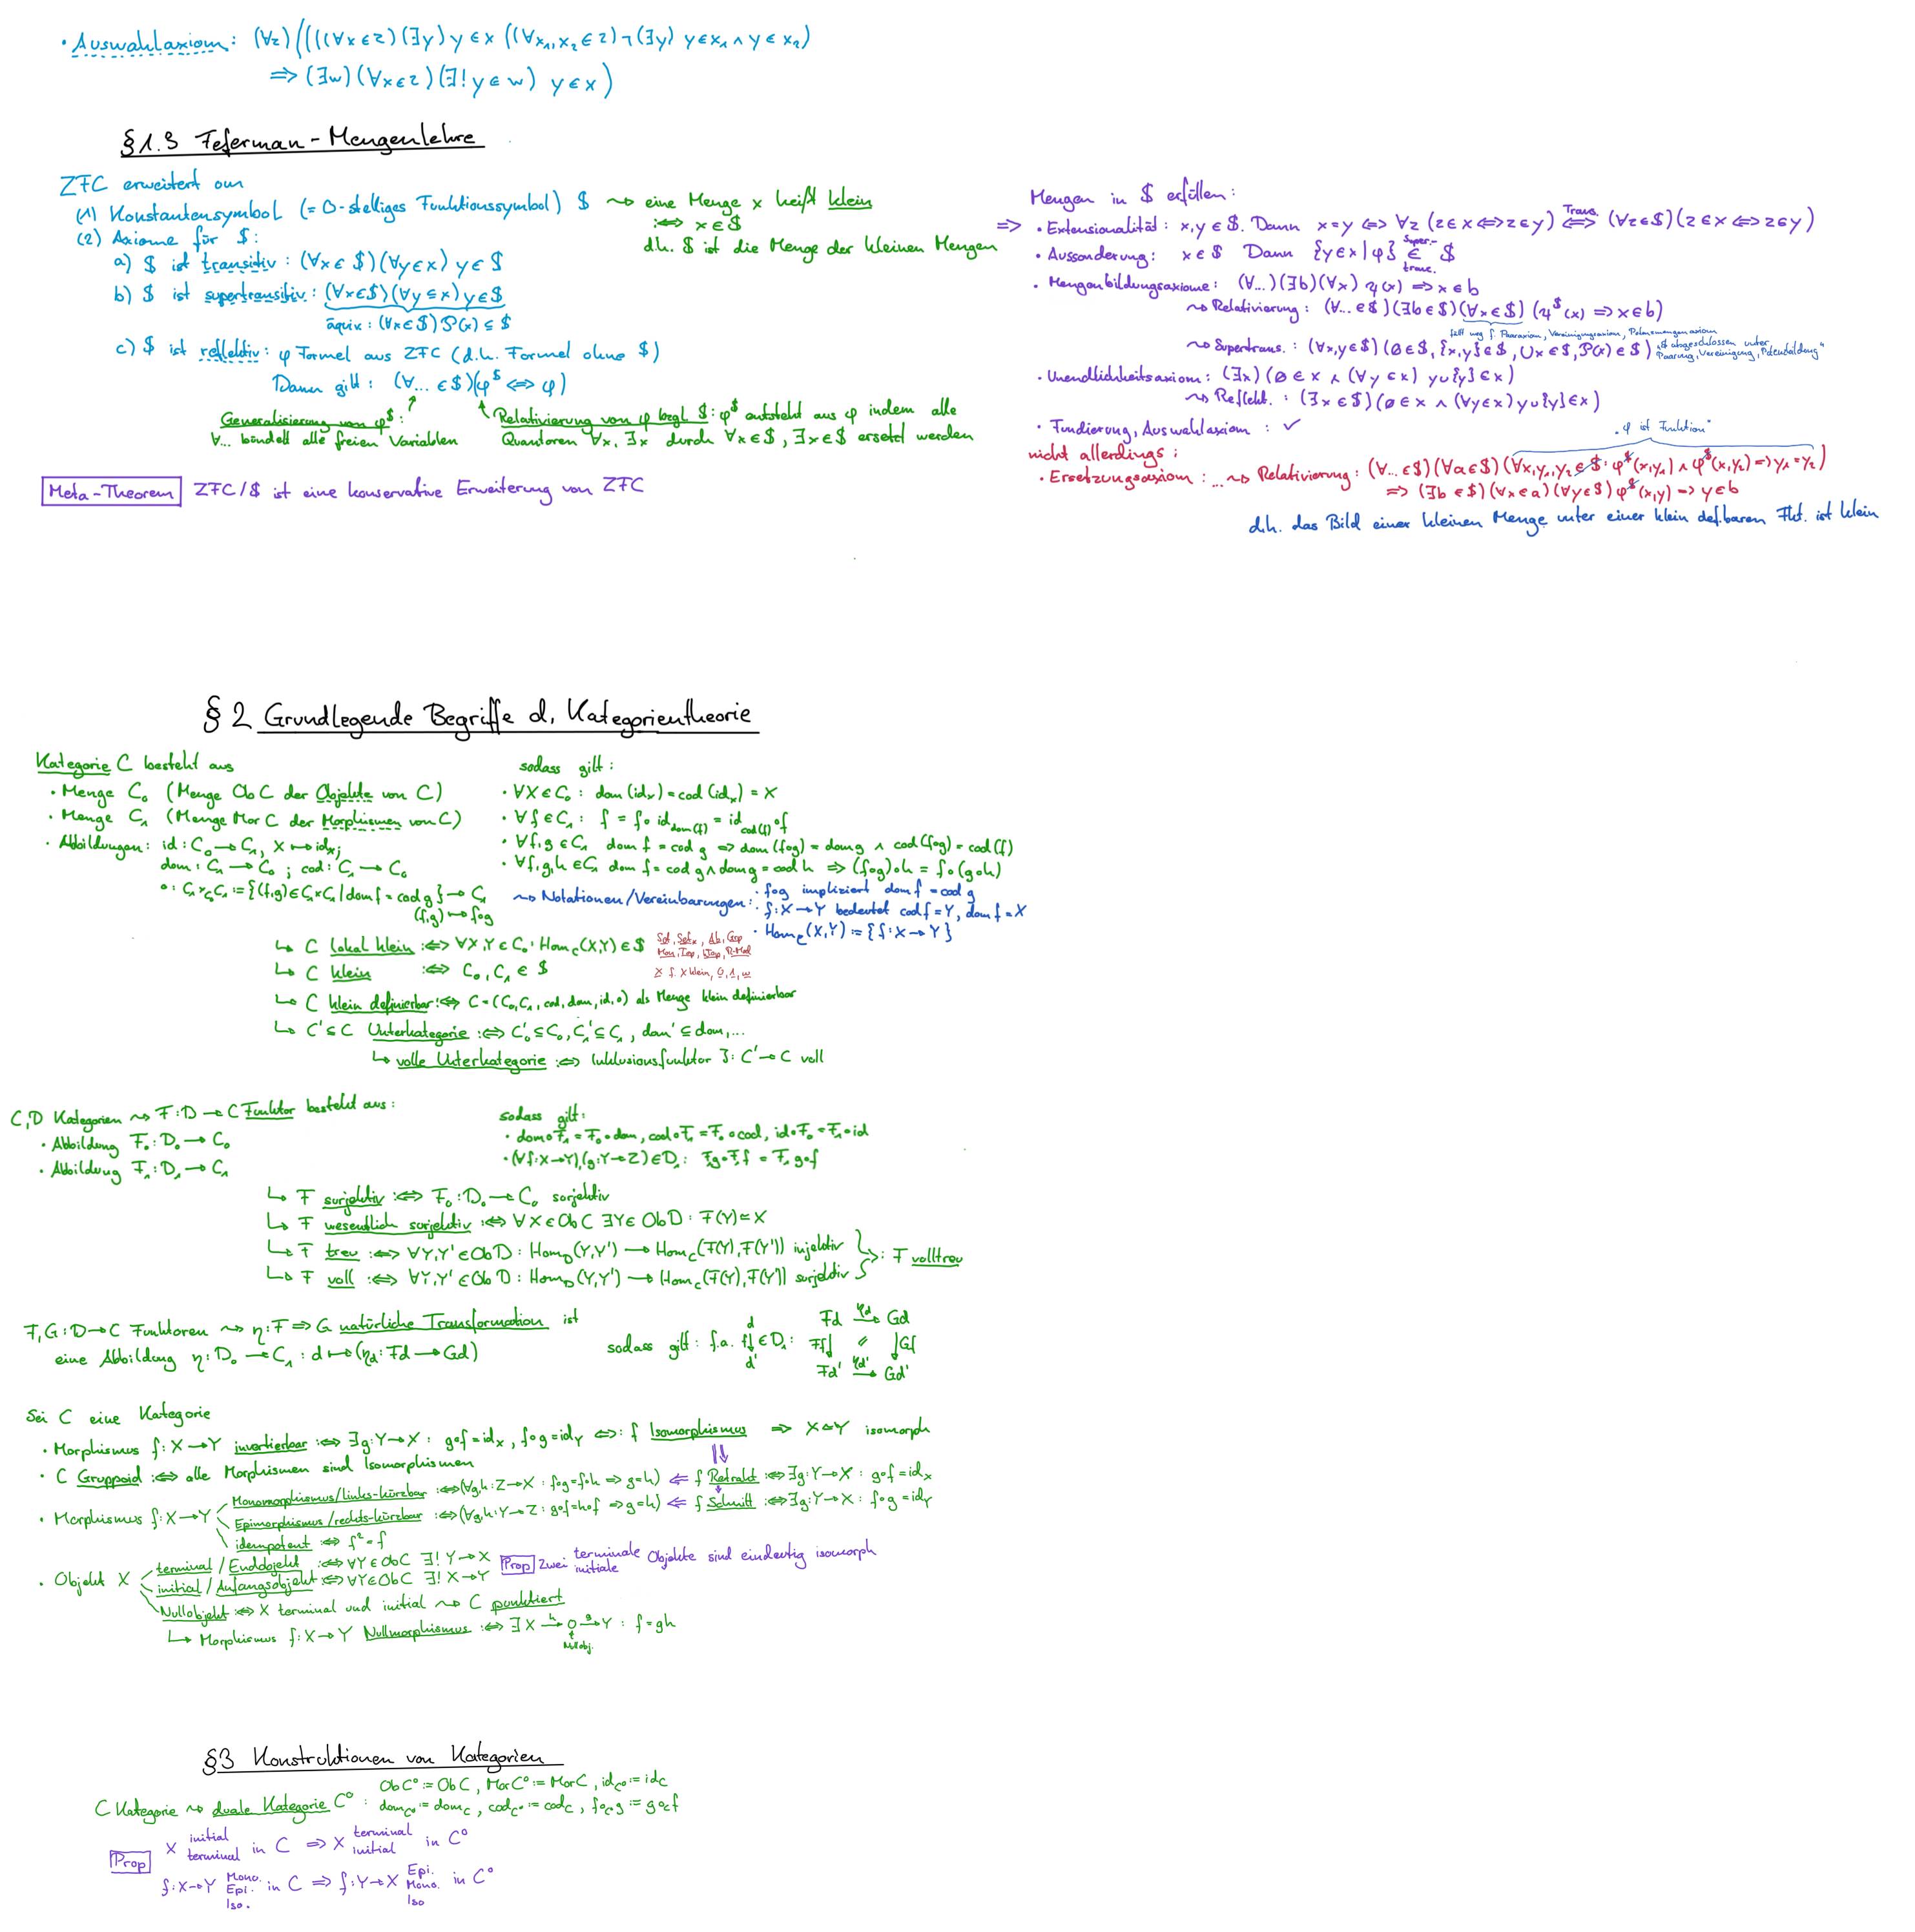 • Auswahlaxiom: (∀z)((((∀x∈z)(∃y) y∈x ((∀x₁,x₂∈z)¬(∃y) y∈x₁ ∧ y∈x₂)
⇒ (∃w)(∀x∈z)(∃!y∈w) y∈x)
§1.3 Feferman-Mengenlehre
ZFC erweitert um
(1) Konstantensymbol (= 0-stelliges Funktionssymbol) $ ⇝ eine Menge x heißt klein
:⇔ x∈$
d.h. $ ist die Menge der kleinen Mengen
(2) Axiome für $:
a) $ ist transitiv: (∀x∈$)(∀y∈x) y∈$
b) $ ist supertransitiv: (∀x∈$)(∀y⊆x) y∈$
äquiv: (∀x∈$) P(x)⊆$
c) $ ist reflektiv: φ Formel aus ZFC (d.h. Formel ohne $)
Dann gilt: (∀...∈$)(φ^$ ⇔ φ)
Generalisierung von φ^$:
∀... bündelt alle freien Variablen
Relativierung von φ bzgl $: φ^$ entsteht aus φ indem alle
Quantoren ∀x, ∃x durch ∀x∈$, ∃x∈$ ersetzt werden
Meta-Theorem ZFC/$ ist eine konservative Erweiterung von ZFC
Mengen in $ erfüllen:
⇒ • Extensionalität: x,y∈$. Dann x=y ⇔ ∀z (z∈x⇔z∈y) ⇔ Trans. (∀z∈$)(z∈x⇔z∈y)
• Aussonderung: x∈$ Dann {y∈x|φ} ∈ super-trans. $
• Mengenbildungsaxiome: (∀...)(∃b)(∀x) ψ(x) ⇒ x∈b
⇝ Relativierung: (∀...∈$)(∃b∈$)(∀x∈$)(ψ^$(x) ⇒ x∈b)
fällt weg f. Paaraxiom, Vereinigungsaxiom, Potenzmengenaxiom
⇝ Supertrans.: (∀x,y∈$)(∅∈$, {x,y}∈$, ∪x∈$, P(x)∈$) „$ abgeschlossen unter
Paarung, Vereinigung, Potenzbildung"
• Unendlichkeitsaxiom: (∃x)(∅∈x ∧ (∀y∈x) y∪{y}∈x)
⇝ Reflekt.: (∃x∈$)(∅∈x ∧ (∀y∈x) y∪{y}∈x)
• Fundierung, Auswahlaxiom: ✓
„φ ist Funktion"
nicht allerdings:
• Ersetzungsaxiom: ... ⇝ Relativierung: (∀...∈$)(∀a∈$)(∀x,y₁,y₂∈$: φ^$(x,y₁) ∧ φ^$(x,y₂) ⇒ y₁=y₂)
⇒ (∃b∈$)(∀x∈a)(∀y∈$) φ^$(x,y) ⇒ y∈b
d.h. das Bild einer kleinen Menge unter einer klein def.baren Fkt. ist klein
§2 Grundlegende Begriffe d. Kategorientheorie
Kategorie C besteht aus
• Menge C₀ (Menge Ob C der Objekte von C)
• Menge C₁ (Menge Mor C der Morphismen von C)
• Abbildungen: id: C₀→C₁, X↦idₓ;
dom: C₁→C₀; cod: C₁→C₀
∘: C₁×_C₀C₁:={(f,g)∈C₁×C₁|dom f = cod g}→C₁
(f,g)↦f∘g
sodass gilt:
• ∀X∈C₀: dom(idₓ)=cod(idₓ)=X
• ∀f∈C₁: f = f∘id_dom(f) = id_cod(f)∘f
• ∀f,g∈C₁ dom f = cod g ⇒ dom(f∘g) = dom g ∧ cod(f∘g) = cod(f)
• ∀f,g,h∈C₁ dom f = cod g ∧ dom g = cod h ⇒ (f∘g)∘h = f∘(g∘h)
⇝ Notationen/Vereinbarungen: • f∘g impliziert dom f = cod g
• f: X→Y bedeutet cod f = Y, dom f = X
• Hom_C(X,Y) := {f: X→Y}
↳ C lokal klein :⇔ ∀X,Y∈C₀: Hom_C(X,Y)∈$
Set, Set*, Ab, Grp
Mon, Top, hTop, R-Mod
X f. X klein, 0, 1, ω
↳ C klein :⇔ C₀, C₁ ∈ $
↳ C klein definierbar :⇔ C=(C₀,C₁,cod,dom,id,∘) als Menge klein definierbar
↳ C'⊆C Unterkategorie :⇔ C'₀⊆C₀, C'₁⊆C₁, dom'⊆dom,...
↳ volle Unterkategorie :⇔ Inklusionsfunktor J: C'→C voll
C,D Kategorien ⇝ F: D→C Funktor besteht aus:
• Abbildung F₀: D₀→C₀
• Abbildung F₁: D₁→C₁
sodass gilt:
• dom∘F₁=F₀∘dom, cod∘F₁=F₀∘cod, id∘F₀=F₁∘id
• (∀f:X→Y),(g:Y→Z)∈D₁: F₁g∘F₁f = F₁ g∘f
↳ F surjektiv :⇔ F₀: D₀→C₀ surjektiv
↳ F wesentlich surjektiv :⇔ ∀X∈Ob C ∃Y∈Ob D: F(Y)≃X
↳ F treu :⇔ ∀Y,Y'∈Ob D: Hom_D(Y,Y')→Hom_C(F(Y),F(Y')) injektiv
↳ F voll :⇔ ∀Y,Y'∈Ob D: Hom_D(Y,Y')→Hom_C(F(Y),F(Y')) surjektiv
} ⇔: F volltreu
F,G: D→C Funktoren ⇝ η: F⇒G natürliche Transformation ist
eine Abbildung η: D₀→C₁: d↦(η_d: Fd→Gd)
sodass gilt: f.a. d f↓ d' ∈D₁:
Fd η_d→ Gd
Ff↓ ↓Gf
Fd' η_d'→ Gd'
Sei C eine Kategorie
• Morphismus f: X→Y invertierbar :⇔ ∃g: Y→X: g∘f=idₓ, f∘g=id_Y ⇔: f Isomorphismus ⇒ X≃Y isomorph
• C Gruppoid :⇔ alle Morphismen sind Isomorphismen
• Morphismus f: X→Y
Monomorphismus/links-kürzbar :⇔ (∀g,h: Z→X: f∘g=f∘h ⇒ g=h) ⇐ f Retrakt :⇔ ∃g: Y→X: g∘f=idₓ
Epimorphismus/rechts-kürzbar :⇔ (∀g,h: Y→Z: g∘f=h∘f ⇒ g=h) ⇐ f Schnitt :⇔ ∃g: Y→X: f∘g=id_Y
idempotent :⇔ f²=f
• Objekt X
terminal/Endobjekt :⇔ ∀Y∈Ob C ∃! Y→X
initial/Anfangsobjekt :⇔ ∀Y∈Ob C ∃! X→Y
Prop Zwei terminale initiale Objekte sind eindeutig isomorph
Nullobjekt :⇔ X terminal und initial ⇝ C punktiert
↳ Morphismus f: X→Y Nullmorphismus :⇔ ∃ X h→ 0 g→ Y: f=gh
Nullobj.
§3 Konstruktionen von Kategorien
C Kategorie ⇝ duale Kategorie C°: Ob C° := Ob C, Mor C° := Mor C, id_C° := id_C
dom_C° := dom_C, cod_C° := cod_C, f∘_C° g := g∘_C f
Prop
X initial terminal in C ⇒ X terminal initial in C°
f: X→Y Mono. Epi. Iso. in C ⇒ f: Y→X Epi. Mono. Iso in C°